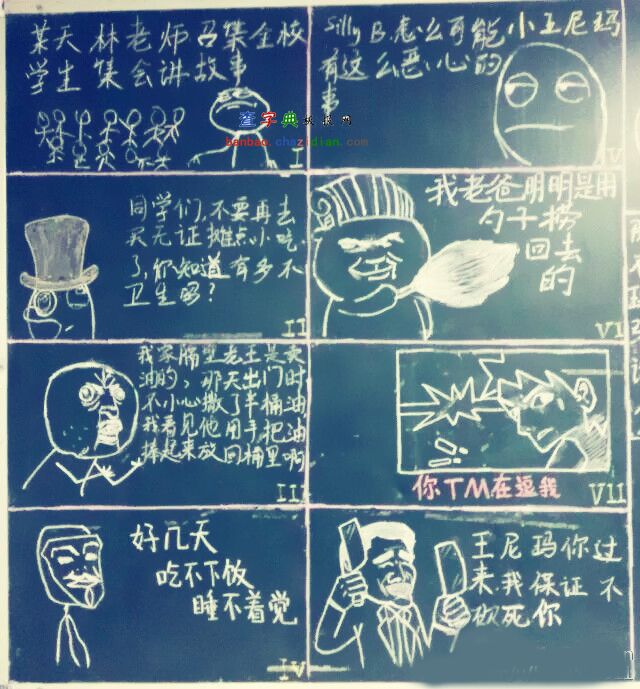 某天 林老师召集全校
学生 集会讲故事
I
同学们,不要再去
买无证摊点小吃
了,你知道有多不
卫生吗?
II
我家隔壁老王是卖
油的,那天出门时
不小心撒了半桶油
我看见他用手把油
捧起来放回桶里啊
III
好几天
吃不下饭
睡不着觉
IV
Silly B.怎么可能小王尼玛
有这么恶心的
事
V
我老爸明明是用
勺子捞
回去
的
VI
你TM在逗我
VII
王尼玛你过
来.我保证不
砍死你
查字典
banbao.chazidian.com